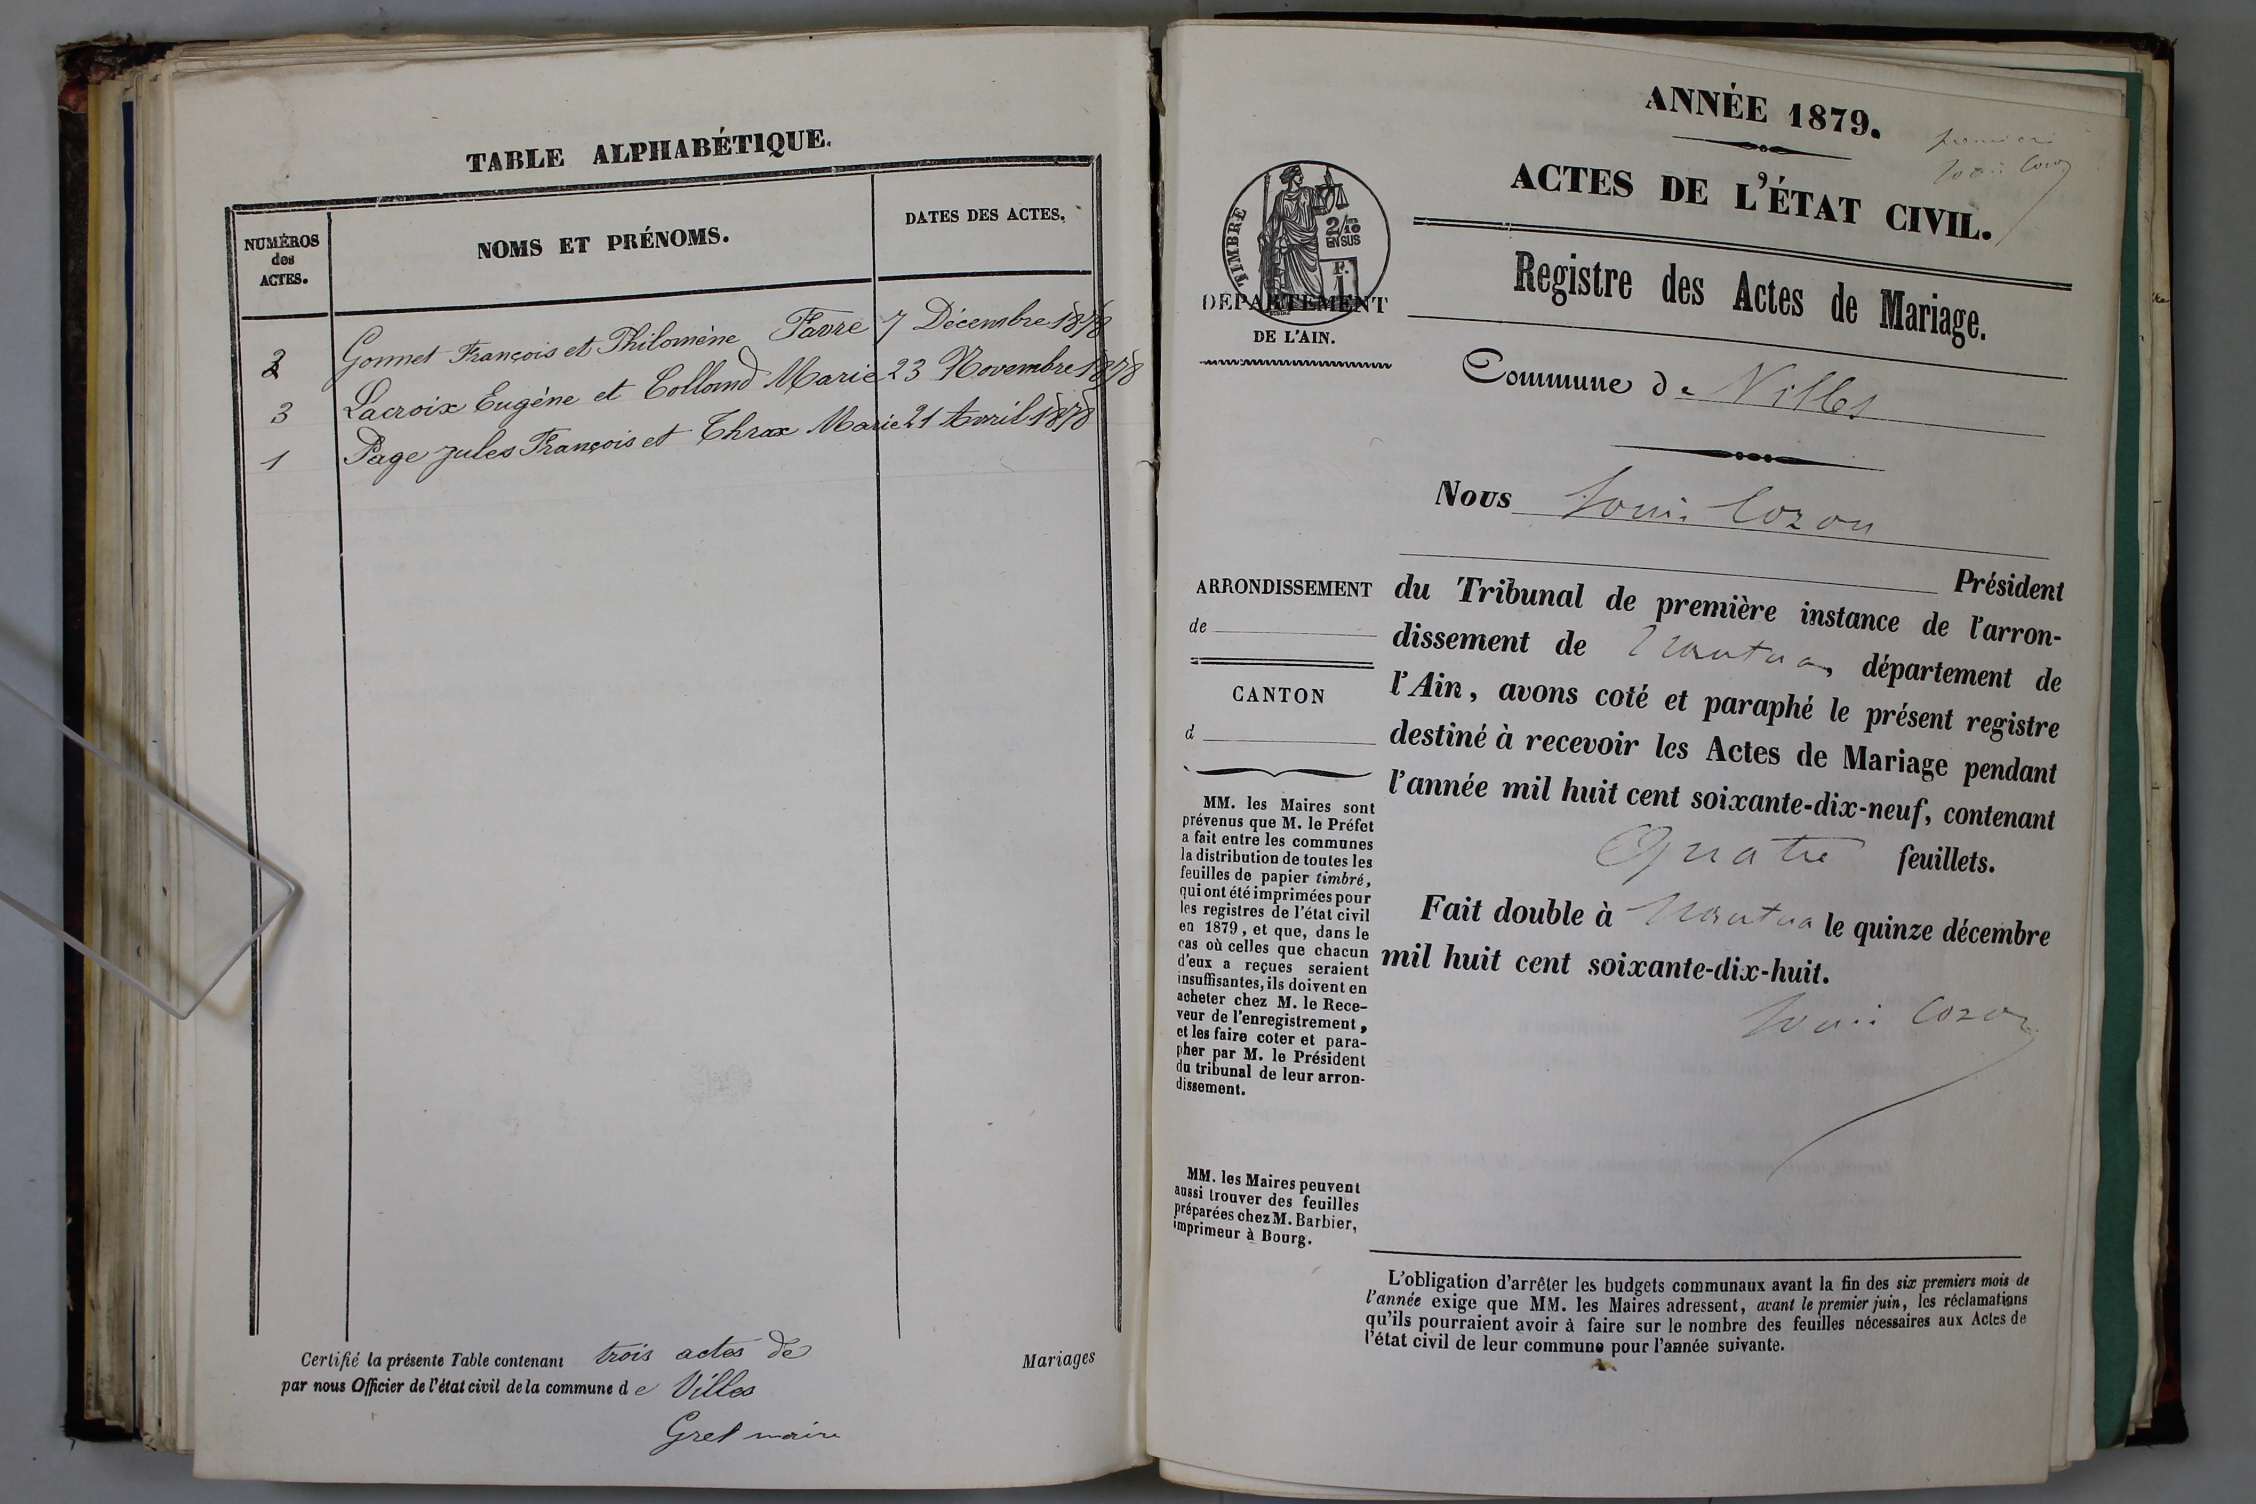 TABLE ALPHABÉTIQUE.
NUMÉROS
des
ACTES.
NOMS ET PRÉNOMS.
DATES DES ACTES.
2 Gonnet François et Philomène Favre 7 Décembre 1878
3 Lacroix Eugène et Colland Marie 23 Novembre 1878
1 Page Jules François et Thrax Marie 21 Avril 1878
Certifié la présente Table contenant trois actes de Mariages
par nous Officier de l'état civil de la commune de Villes
Gret maire
ANNÉE 1879.
premier
Louis Cozon
ACTES DE L'ÉTAT CIVIL.
Registre des Actes de Mariage.
TIMBRE
2/10
EN SUS
F.
1
DEPARTEMENT
DE L'AIN.
Commune de Villes
Nous Louis Cozon
Président
du Tribunal de première instance de l'arron-
dissement de Nantua, département de
l'Ain, avons coté et paraphé le présent registre
destiné à recevoir les Actes de Mariage pendant
l'année mil huit cent soixante-dix-neuf, contenant
Quatre feuillets.
Fait double à Nantua le quinze décembre
mil huit cent soixante-dix-huit.
Louis Cozon
ARRONDISSEMENT
de
CANTON
d
MM. les Maires sont
prévenus que M. le Préfet
a fait entre les communes
la distribution de toutes les
feuilles de papier timbré,
qui ont été imprimées pour
les registres de l'état civil
en 1879, et que, dans le
cas où celles que chacun
d'eux a reçues seraient
insuffisantes, ils doivent en
acheter chez M. le Rece-
veur de l'enregistrement,
et les faire coter et para-
pher par M. le Président
du tribunal de leur arron-
dissement.
MM. les Maires peuvent
aussi trouver des feuilles
préparées chez M. Barbier,
imprimeur à Bourg.
L'obligation d'arrêter les budgets communaux avant la fin des six premiers mois de
l'année exige que MM. les Maires adressent, avant le premier juin, les réclamations
qu'ils pourraient avoir à faire sur le nombre des feuilles nécessaires aux Actes de
l'état civil de leur commune pour l'année suivante.